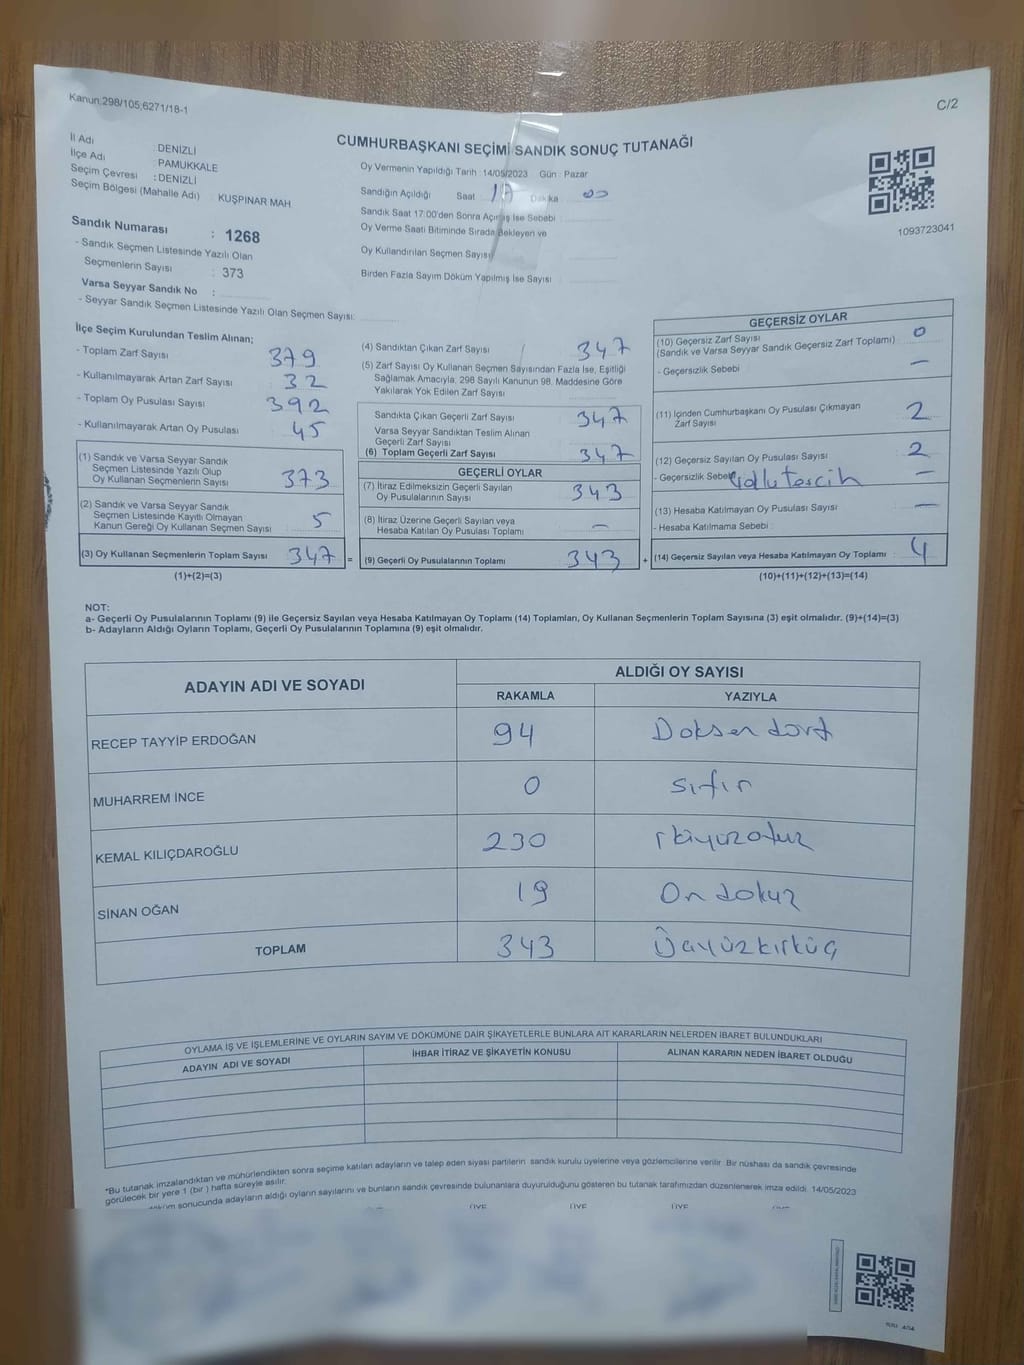 Kanun:298/105;6271/18-1
C/2
CUMHURBAŞKANI SEÇİMİ SANDIK SONUÇ TUTANAĞI
İl Adı : DENİZLİ
İlçe Adı : PAMUKKALE
Seçim Çevresi : DENİZLİ
Seçim Bölgesi (Mahalle Adı) : KUŞPINAR MAH
Oy Vermenin Yapıldığı Tarih : 14/05/2023 Gün : Pazar
Sandığın Açıldığı Saat 17 Dakika 00
Sandık Saat 17:00'den Sonra Açılmış İse Sebebi
Oy Verme Saati Bitiminde Sırada Bekleyen ve
Oy Kullandırılan Seçmen Sayısı
Birden Fazla Sayım Döküm Yapılmış İse Sayısı
1093723041
Sandık Numarası : 1268
- Sandık Seçmen Listesinde Yazılı Olan
Seçmenlerin Sayısı : 373
Varsa Seyyar Sandık No :
- Seyyar Sandık Seçmen Listesinde Yazılı Olan Seçmen Sayısı:
İlçe Seçim Kurulundan Teslim Alınan;
- Toplam Zarf Sayısı 379
- Kullanılmayarak Artan Zarf Sayısı 32
- Toplam Oy Pusulası Sayısı 392
- Kullanılmayarak Artan Oy Pusulası 45
(1) Sandık ve Varsa Seyyar Sandık
Seçmen Listesinde Yazılı Olup
Oy Kullanan Seçmenlerin Sayısı 373
(2) Sandık ve Varsa Seyyar Sandık
Seçmen Listesinde Kayıtlı Olmayan
Kanun Gereği Oy Kullanan Seçmen Sayısı 5
(3) Oy Kullanan Seçmenlerin Toplam Sayısı 347 =
(1)+(2)=(3)
(4) Sandıktan Çıkan Zarf Sayısı 347
(5) Zarf Sayısı Oy Kullanan Seçmen Sayısından Fazla İse, Eşitliği
Sağlamak Amacıyla, 298 Sayılı Kanunun 98. Maddesine Göre
Yakılarak Yok Edilen Zarf Sayısı
Sandıkta Çıkan Geçerli Zarf Sayısı 347
Varsa Seyyar Sandıktan Teslim Alınan
Geçerli Zarf Sayısı
(6) Toplam Geçerli Zarf Sayısı 347
GEÇERLİ OYLAR
(7) İtiraz Edilmeksizin Geçerli Sayılan
Oy Pusulalarının Sayısı 343
(8) İtiraz Üzerine Geçerli Sayılan veya
Hesaba Katılan Oy Pusulası Toplamı –
(9) Geçerli Oy Pusulalarının Toplamı 343 +
GEÇERSİZ OYLAR
(10) Geçersiz Zarf Sayısı 0
(Sandık ve Varsa Seyyar Sandık Geçersiz Zarf Toplamı)
- Geçersizlik Sebebi –
(11) İçinden Cumhurbaşkanı Oy Pusulası Çıkmayan
Zarf Sayısı 2
(12) Geçersiz Sayılan Oy Pusulası Sayısı 2
- Geçersizlik Sebebi tercih –
(13) Hesaba Katılmayan Oy Pusulası Sayısı –
- Hesaba Katılmama Sebebi
(14) Geçersiz Sayılan veya Hesaba Katılmayan Oy Toplamı 4
(10)+(11)+(12)+(13)=(14)
NOT:
a- Geçerli Oy Pusulalarının Toplamı (9) ile Geçersiz Sayılan veya Hesaba Katılmayan Oy Toplamı (14) Toplamları, Oy Kullanan Seçmenlerin Toplam Sayısına (3) eşit olmalıdır. (9)+(14)=(3)
b- Adayların Aldığı Oyların Toplamı, Geçerli Oy Pusulalarının Toplamına (9) eşit olmalıdır.
ADAYIN ADI VE SOYADI
ALDIĞI OY SAYISI
RAKAMLA YAZIYLA
RECEP TAYYİP ERDOĞAN 94 Doksan dört
MUHARREM İNCE 0 sıfır
KEMAL KILIÇDAROĞLU 230 ikiyüzotuz
SİNAN OĞAN 19 On dokuz
TOPLAM 343 Üçyüzkırküç
OYLAMA İŞ VE İŞLEMLERİNE VE OYLARIN SAYIM VE DÖKÜMÜNE DAİR ŞİKAYETLERLE BUNLARA AİT KARARLARIN NELERDEN İBARET BULUNDUKLARI
ADAYIN ADI VE SOYADI İHBAR İTİRAZ VE ŞİKAYETİN KONUSU ALINAN KARARIN NEDEN İBARET OLDUĞU
*Bu tutanak imzalandıktan ve mühürlendikten sonra seçime katılan adayların ve talep eden siyasi partilerin sandık kurulu üyelerine veya gözlemcilerine verilir. Bir nüshası da sandık çevresinde
görülecek bir yere 1 (bir) hafta süreyle asılır.
döküm sonucunda adayların aldığı oyların sayılarını ve bunların sandık çevresinde bulunanlara duyurulduğunu gösteren bu tutanak tarafımızdan düzenlenerek imza edildi. 14/05/2023
ÜYE ÜYE ÜYE